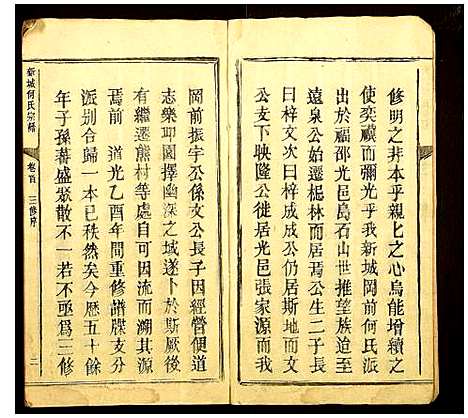 修明之非本乎親比之心烏能增續之
使奕禩而彌光乎我新城岡前何氏派
出於福邵光邑島石山世推望族迨至
遠泉公始遷杷林而居焉公生二子長
曰梓文次曰梓成成公仍居斯地而文
公支下映隆公徙居光邑張家源而我
岡前振宇公係文公長子因經營便道
志樂邱園擇幽深之域遂卜於斯厥後
有繼遷熊村等處自可因流而溯其源
焉前 道光乙酉年間重修譜牒支分
派別合歸一本已秩然矣今歷五十餘
年子孫蕃盛聚散不一若不亟爲三修
新城何氏宗譜
卷首 三修序
二